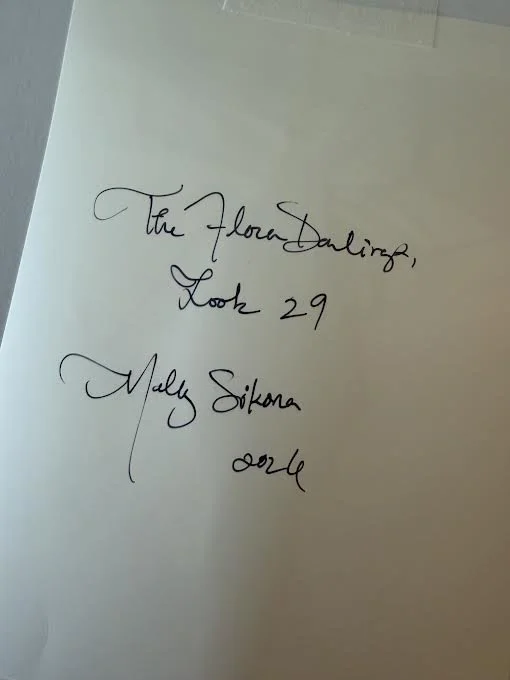 The Flora Darlings,
Look 29
Mally Sikora
2024